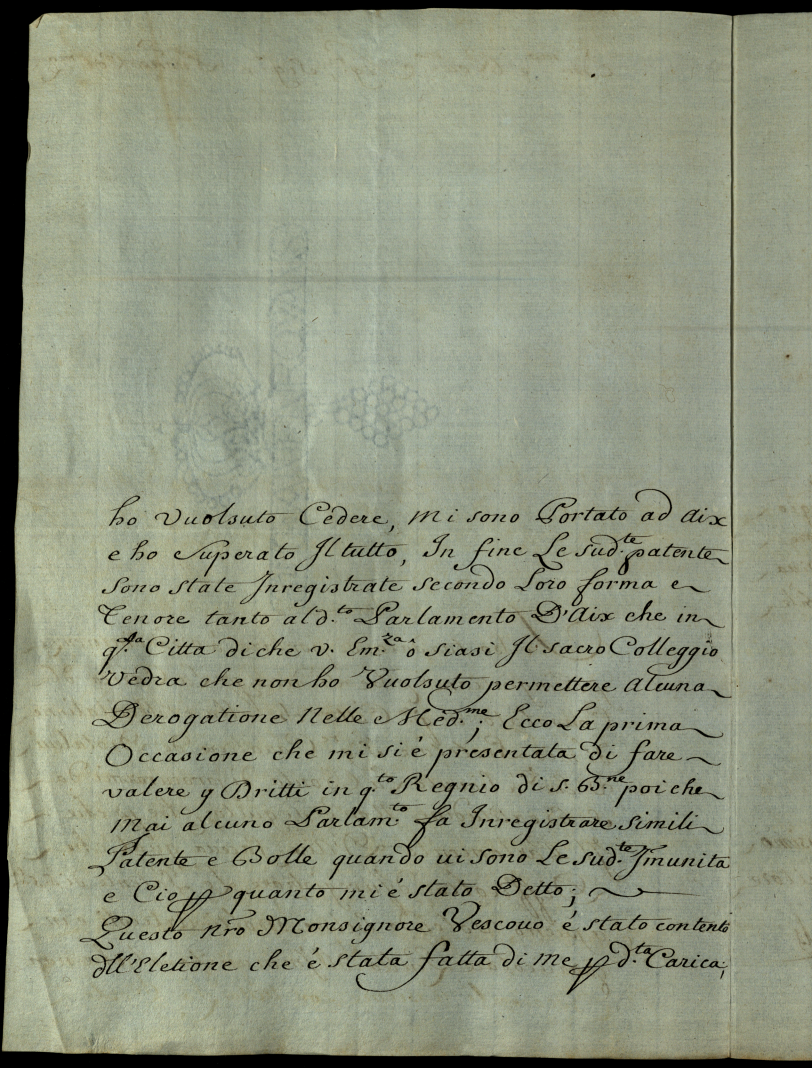 ho Vuolsuto Cedere, mi sono Portato ad Aix
e ho Superato Il tutto, In fine Le sud.te patente
sono state Inregistrate secondo Loro forma e
Tenore tanto al d.to Parlamento D'Aix che in
q.ta Citta di che v. Em.za ô siasi Il sacro Colleggio
Vedra che non ho Vuolsuto permettere Alcuna
Derogatione Nelle Med.me; Ecco La prima
Occasione che mi si é presentata di fare
valere y Dritti in q.to Regnio di s. B.ne poi che
Mai alcuno Parlam.to fa Inregistrare simili
Patente e Bolle quando ui sono Le sud.te Imunita
e Cio p quanto mi é stato Detto;
Questo nro Monsignore Vescouo é stato contento
dll'Eletione che é stata fatta di Me p d.ta Carica,